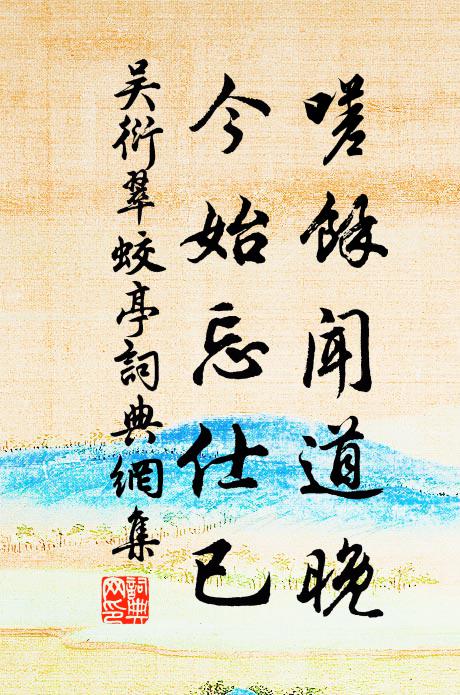 嗟餘聞道晚
今始忘仕已
吴衍翠蛟亭詞典網集
詞典网印